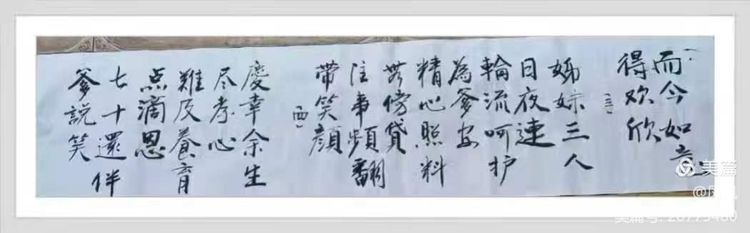 而今如意
得欢欣
姊妹三人
日夜連
輪流呵护
為爹安
精心照料
無傍貸
往事頻翻
帶笑顔
慶幸余生
尽孝心
難及養育
点滴恩
七十還伴
爹説笑
美篇